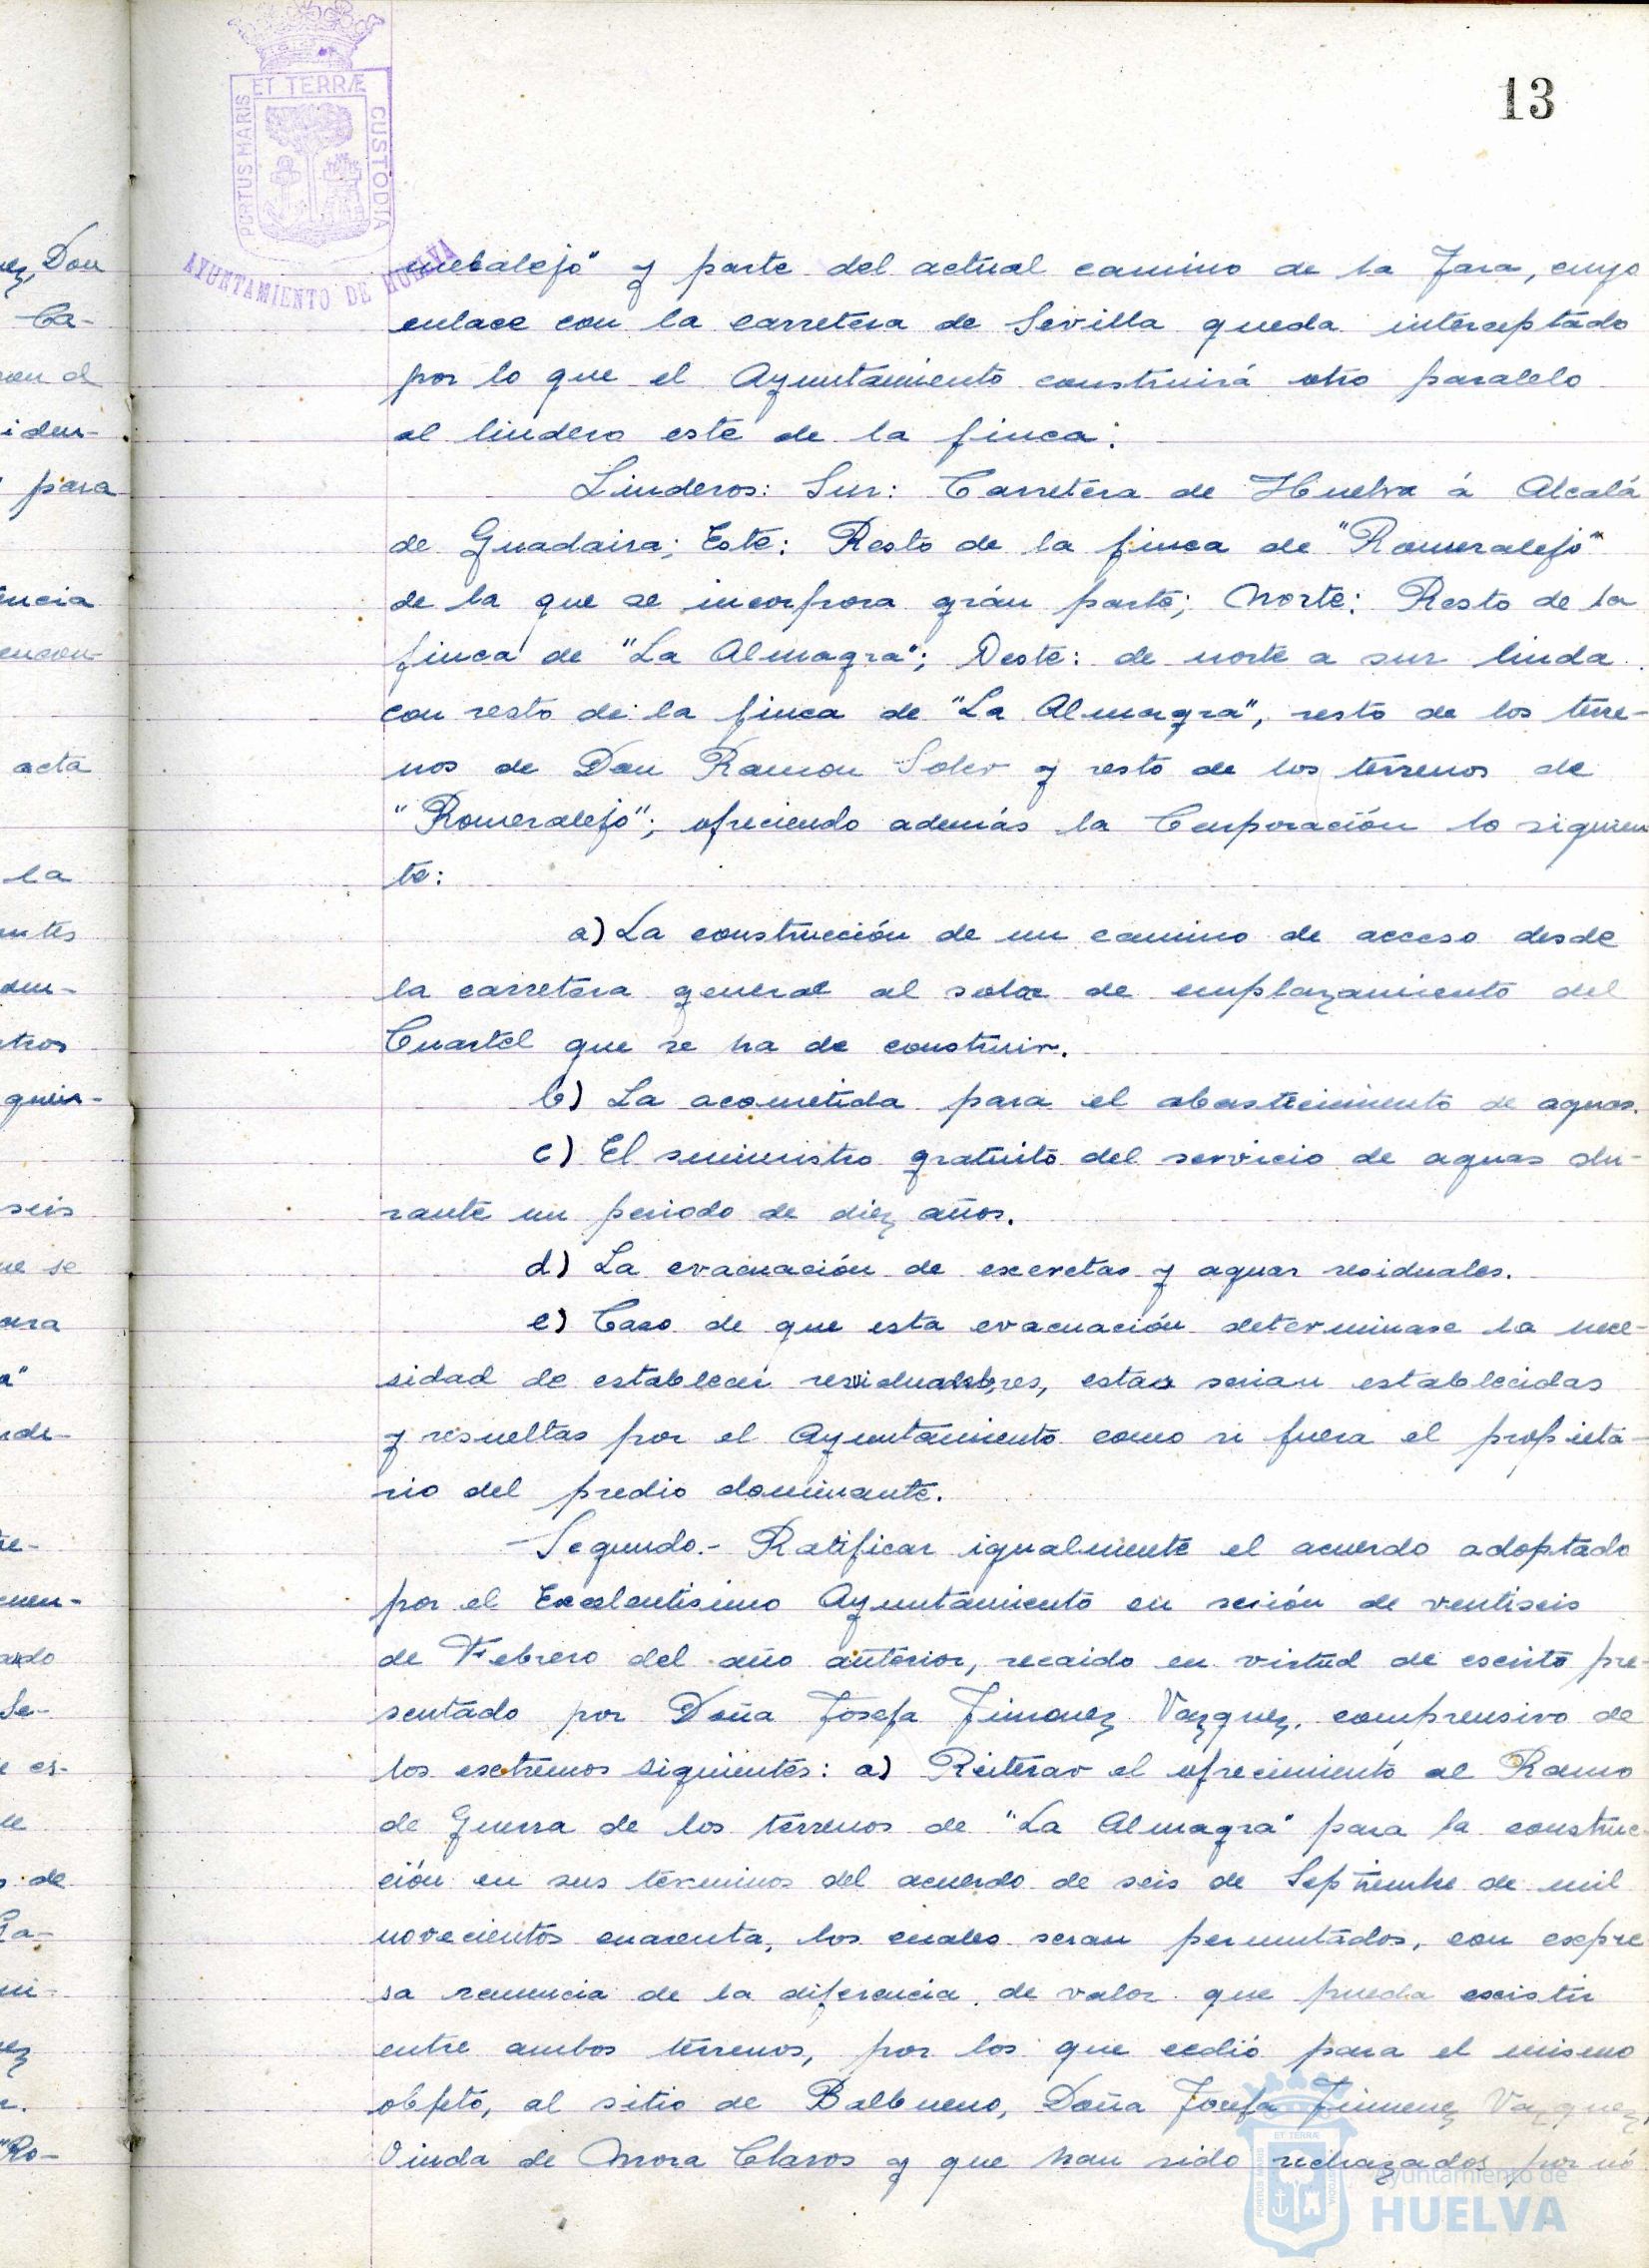 13
ET TERRÆ
PORTUS MARIS
CUSTODIA
AYUNTAMIENTO DE HUELVA
meralejo" y parte del actual camino de la Jara, cuyo
enlace con la carretera de Sevilla queda interceptado
por lo que el Ayuntamiento construirá otro paralelo
al lindero este de la finca:
Linderos: Sur: Carretera de Huelva á Alcalá
de Guadaira; Este: Resto de la finca de "Romeralejo"
de la que se incorpora grán parte; Norte: Resto de la
finca de "La Almagra"; Oeste: de norte a sur linda
con resto de la finca de "La Almagra", resto de los terre-
nos de Don Ramon Soler y resto de los terrenos de
"Romeralejo"; ofreciendo además la Corporación lo siguien
te:
a) La construcción de un camino de acceso desde
la carretera general al solar de emplazamiento del
Cuartel que se ha de construir.
b) La acometida para el abastecimiento de aguas.
c) El suministro gratuito del servicio de aguas du-
rante un periodo de diez años.
d) La evacuación de excretas y aguas residuales.
e) Caso de que esta evacuación determinase la nece-
sidad de establecer estas serian establecidas
y resueltas por el Ayuntamiento como si fuera el propieta-
rio del predio dominante.
-Segundo.- Ratificar igualmente el acuerdo adoptado
por el Excelentisimo Ayuntamiento en sesión de ventiseis
de Febrero del año anterior, recaido en virtud de escrito pre-
sentado por Doña Josefa Jimenez Vazquez, comprensivo de
los extremos siguientes: a) Reiterar el ofrecimiento al Ramo
de Guerra de los terrenos de "La Almagra" para la construc-
ción en sus terminos del acuerdo de seis de Septiembre de mil
novecientos cuarenta, los cuales seran permutados, con expre
sa renuncia de la diferencia de valor que pueda existir
entre ambos terrenos, por los que cedió para el mismo
objeto, al sitio de Balbueno, Doña Josefa Jimenez Vazquez,
Viuda de Mora Claros y que han sido rechazados por nó
Ayuntamiento de
HUELVA